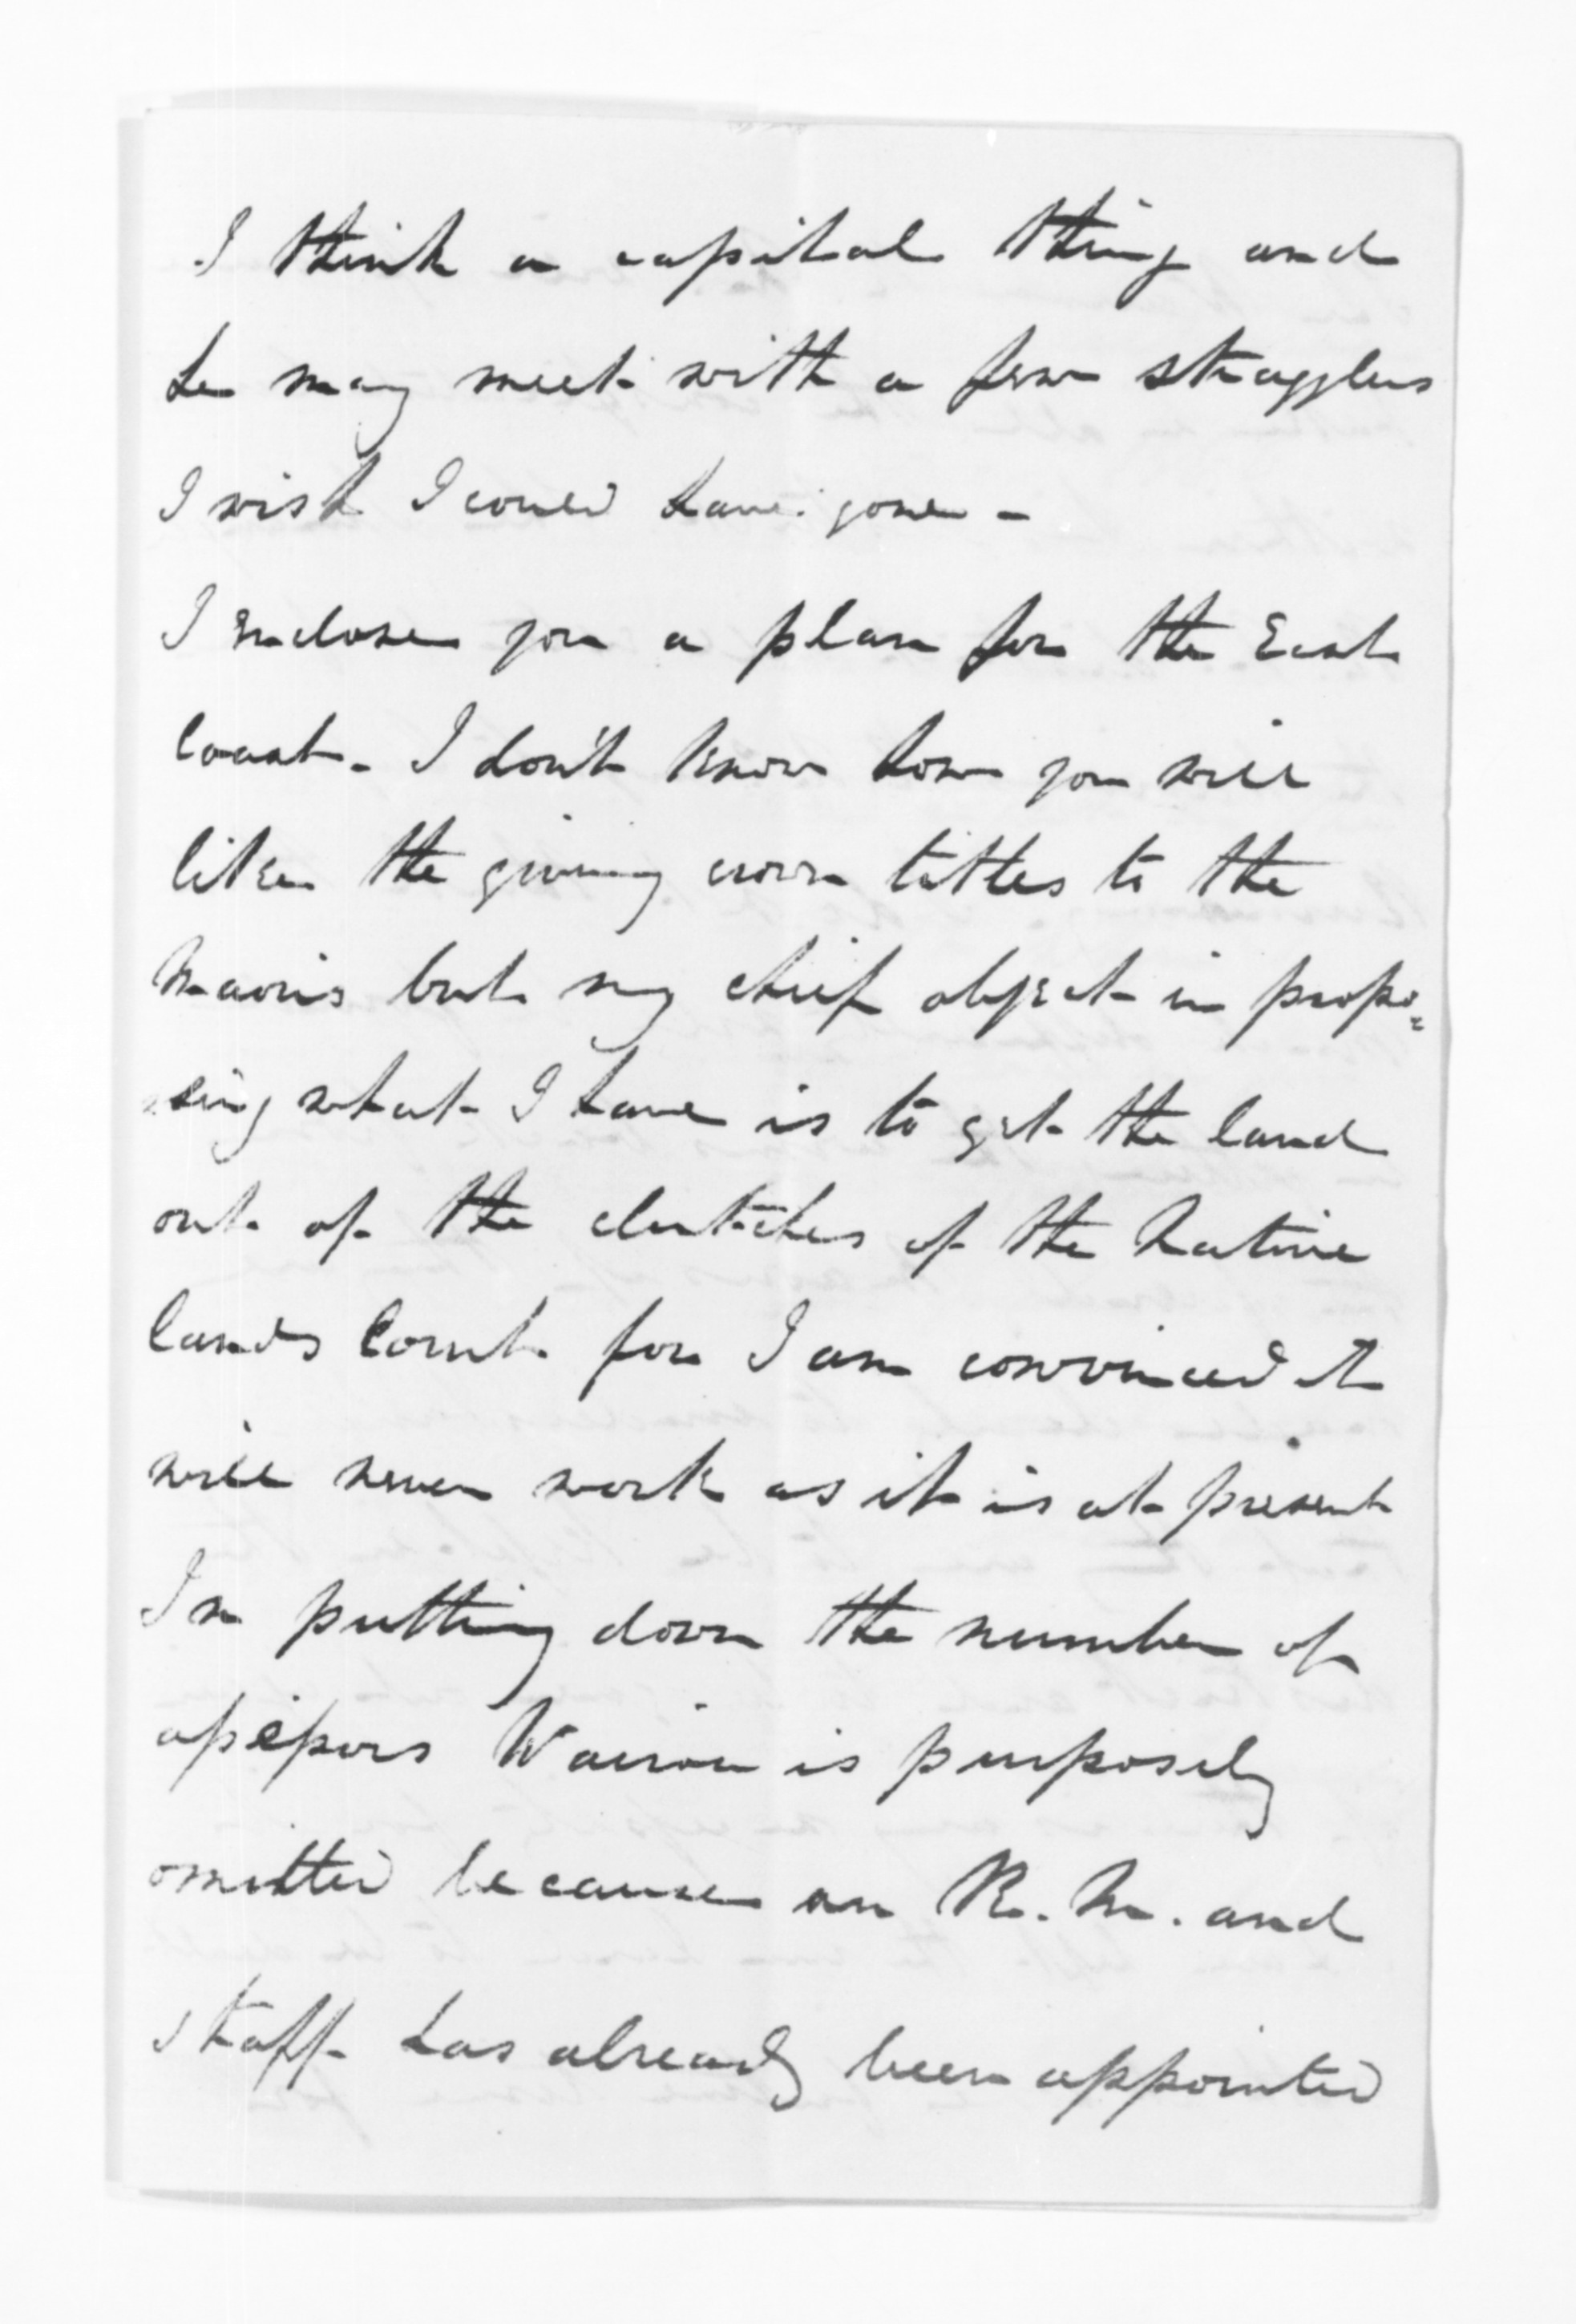 I think a capital thing and
he may meet with a few stragglers
I wish I could have gone -
I enclose you a plan for the East
Coast - I don't know how you will
like the giving crown tittles to the
Maoris but my chief object in propo=
=sing what I have is to get the land
out of the clutches of the Native
lands Court for I am convinced it
will never work as it is at present
In putting down the number of
Wairoa is purposely
omitted because an R. M. and
staff has already been appointed